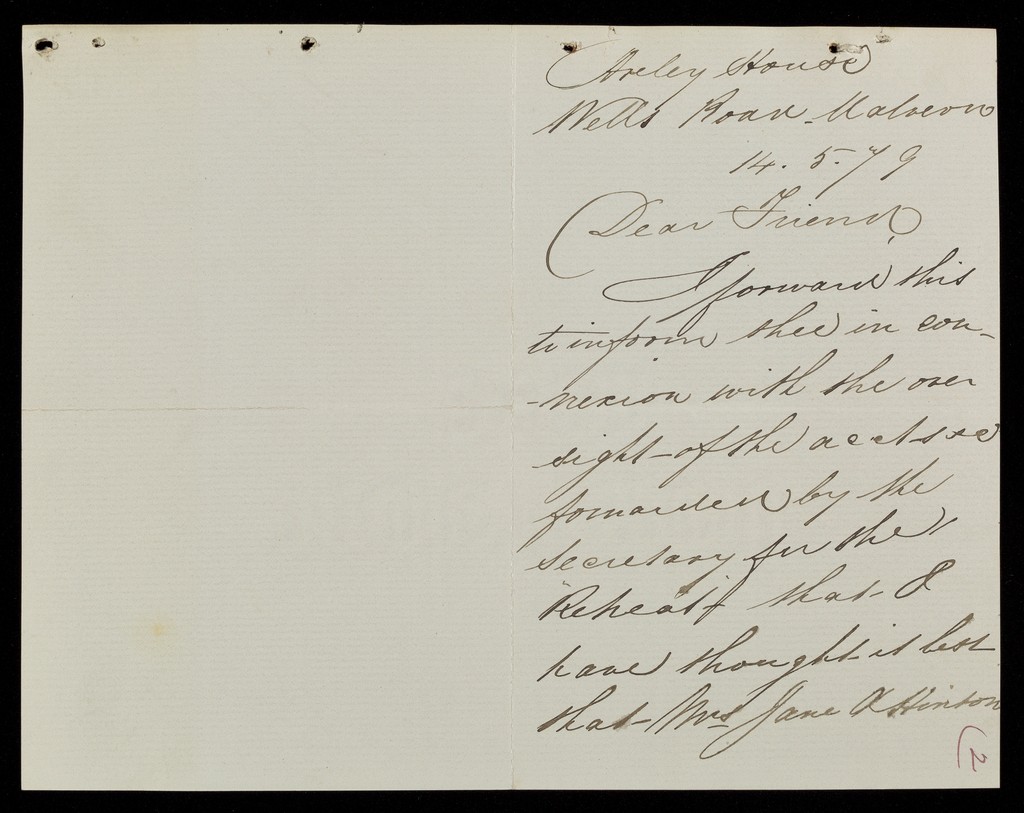 Areley House
Wells Road Malvern
14. 5. 79
Dear Friend,
I forward this
to inform thee in con-
-nexion with the over
sight of the accts &c
forwarded by the
secretary for the
"Reheat" that I
have thought it best
that Mrs Jane Atkinson
(2